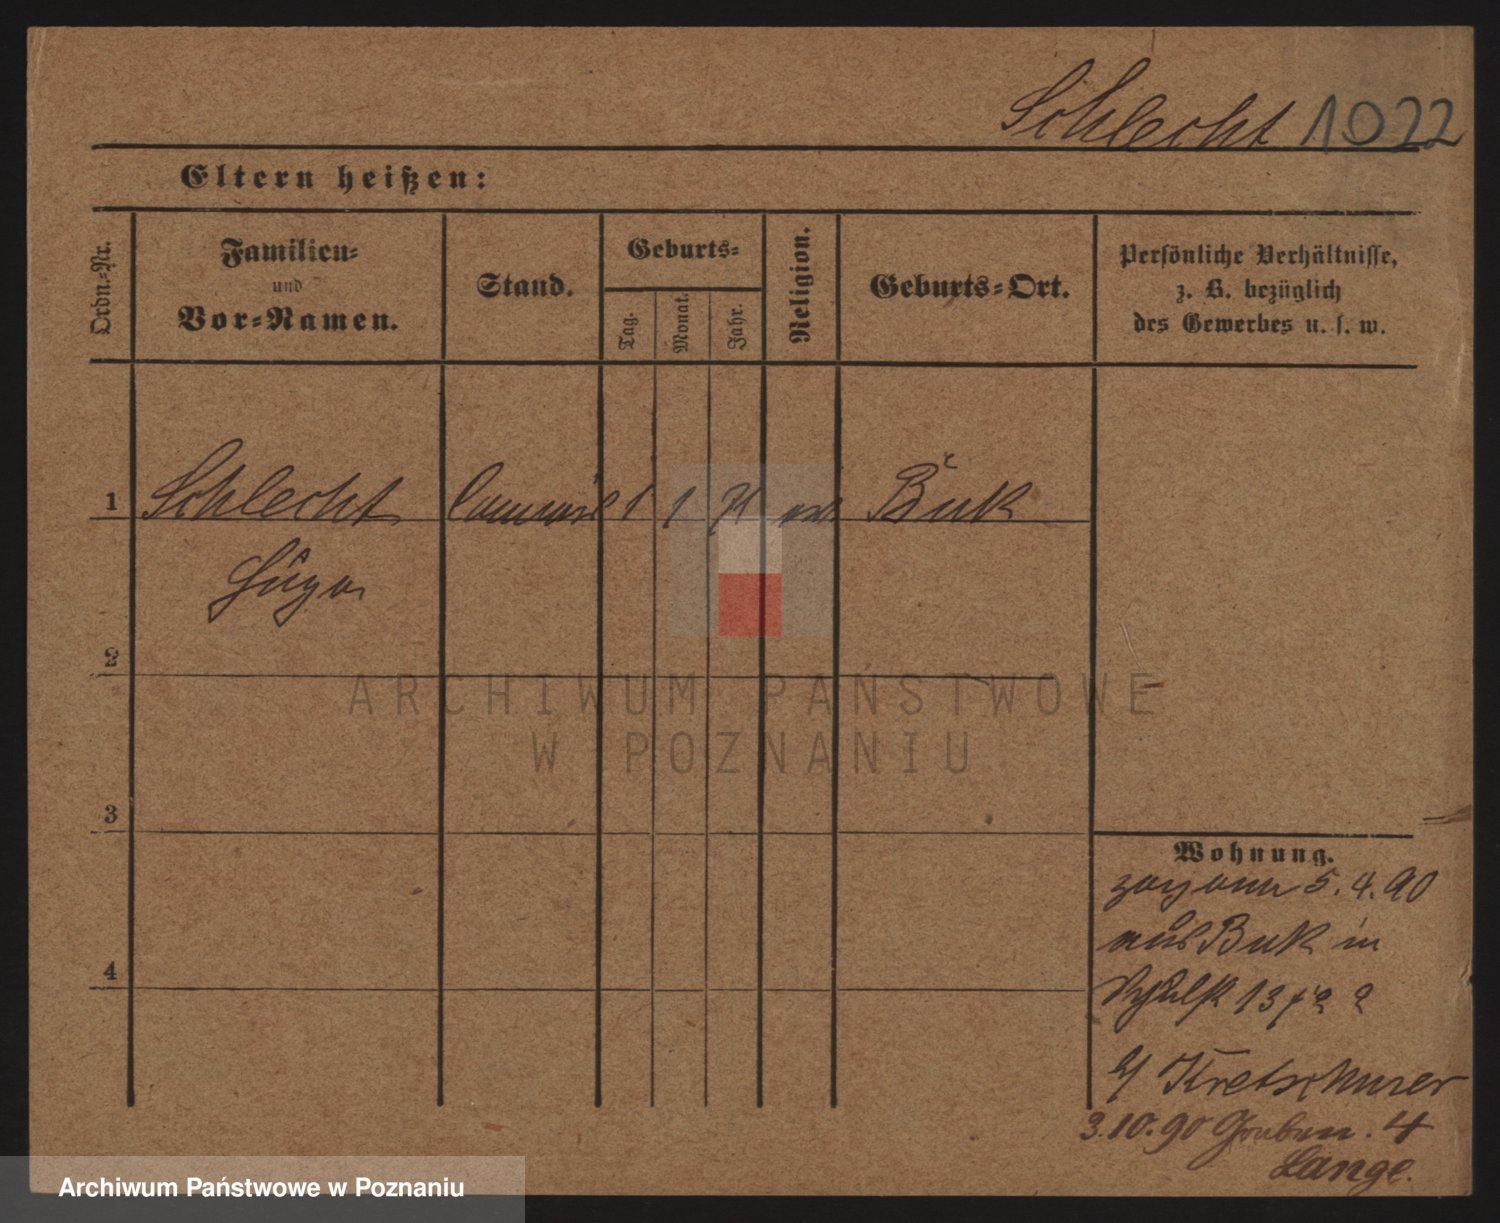 Schlecht 1022
Eltern heißen:
Ordn.-Nr.
Familien-
und
Vor-Namen.
Stand.
Geburts-
Tag.
Monat.
Jahr.
Religion.
Geburts-Ort.
Persönliche Verhältnisse,
z. B. bezüglich
des Gewerbes u. s. w.
1 Schlecht 1 1 71 Buk
Hugo
2
3
4
ARCHIWUM PAŃSTWOWE
W POZNANIU
Wohnung.
zogann 5.4.90
aus Buk in
13
b/ Kretschmer
3.10.90 Graben. 4
Lange.
Archiwum Państwowe w Poznaniu